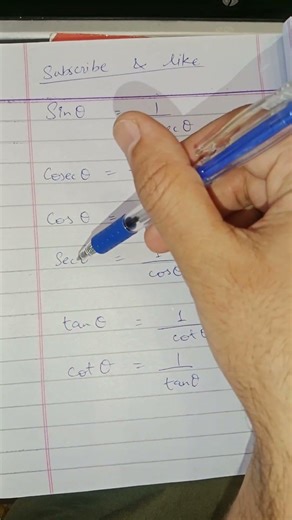 Subscribe & like
Sinθ = 1
Cosecθ =
Cosθ =
Secθ = 1
cosθ
tanθ = 1
cotθ
cotθ = 1
tanθ